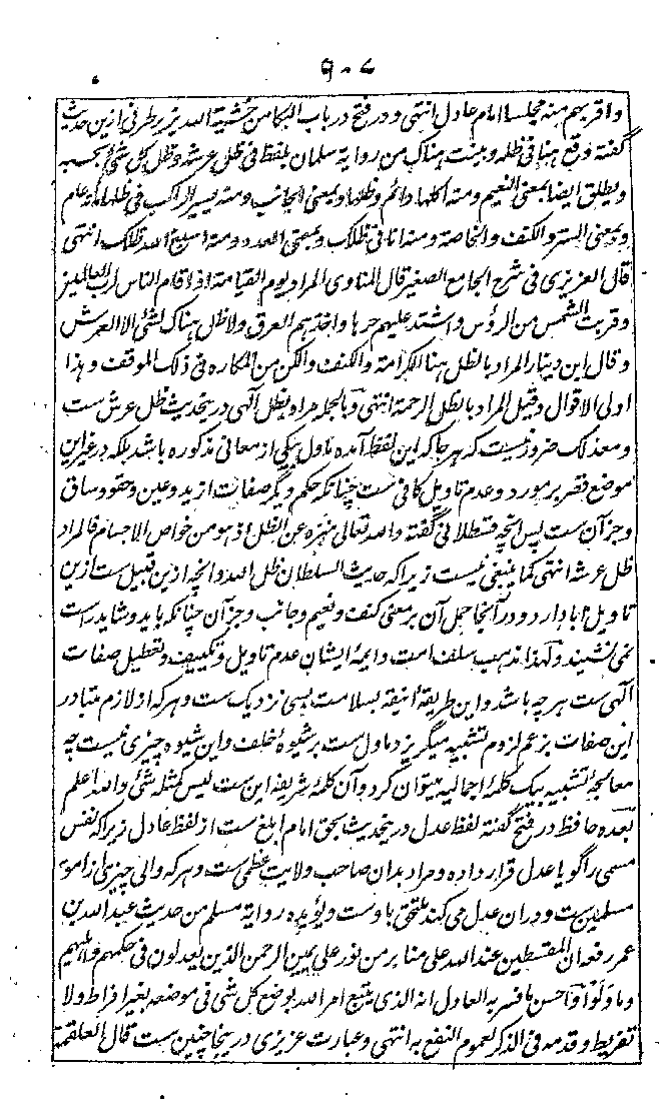 ۹۰۷
واقربهم منه مجلسا امام عادل انتهى ودر فتح در باب البكا من خشية الله نیز بر طرفی ازین حدیث
گفته وقع هنا فی ظله وبینت هناک من روایة سلمان بلفظ فی ظل عرشه وظل کل شئ بحسبه
ویطلق ایضا بمعنی النعیم ومنه اکلها دائم وظلها وبمعنی الجانب ومنه یسیر الراکب فی ظلها مائة عام
وبمعنی الستر والکنف والخاصة ومنه انا فی ظلک وبمعنی العدد ومنه اسبغ الله ظلک انتهى
قال العزیزی فی شرح الجامع الصغیر قال المناوی المراد یوم القیامة اذا قام الناس لرب العالمین
وقربت الشمس من الرؤس واشتد علیهم حرها واخذهم العرق ولا ظل هناک لشئ الا العرش
وقال ابن دینار المراد بالظل هنا الکرامة والکنف والکن من المکاره فی ذلک الموقف وهذا
اولی الاقوال وقیل المراد بالظل الرحمة انتهی وبالجمله مراد بظل آلهی درینحدیث ظل عرش ست
ومعذلک ضرور نیست که هرجا که این لفظ آمده ماول بیکی از معانی مذکوره باشد بلکه در غیر این
موضع قصر بر مورد و عدم تاویل کافی ست چنانکه حکم دیگر صفات از ید و عین و حقو و ساق
و جز آن ست پس انچه قسطلانی گفته والله تعالی منزه عن الظل اذ هو من خواص الاجسام فالمراد
ظل عرشه انتهی کما ینبغی نیست زیرا که حدیث السلطان ظل الله وانچه ازین قبیل ست ازین
تاویل ابا دارد و در آنجا حمل آن بر معنی کنف و نعیم و جانب و جز آن چنانکه باید و شاید راست
نمی نشیند ولهذا مذهب سلف امت و ایمۀ ایشان عدم تاویل و تکییف و تعطیل صفات
آلهی ست هر چه باشد و این طریقۀ انیقه بسلامت بسی نزدیک ست و هر که از لازم متبادر
این صفات بزعم لزوم تشبیه میگریزد ماول ست بر شیوۀ خلف و این شیوه چیزی نیست چه
معالجۀ تشبیه بیک کلمۀ اجمالیه میتوان کرد و آن کلمۀ شریفه این ست لیس کمثله شئ والله اعلم
بعده حافظ در فتح گفته لفظ عدل درینحدیث بحق امام ابلغ ست از لفظ عادل زیرا که نفس
مسمی را گویا عدل قرار داده و مراد بدان صاحب ولایت عظمی ست و هر که والی چیزی از امور
مسلمین ست و دران عدل می کند ملتحق باوست ویؤیده روایة مسلم من حدیث عبدالله بن
عمر رفعه ان المقسطین عند الله علی منابر من نور علی یمین الرحمن الذین یعدلون فی حکمهم واهلیهم
وما ولوا واحسن ما فسر به العادل انه الذی یتبع امر الله بوضع کل شی فی موضعه بغیر افراط ولا
تفریط وقدمه فی الذکر لعموم النفع به انتهی و عبارت عزیزی درینجا چنین ست قال العلقمی